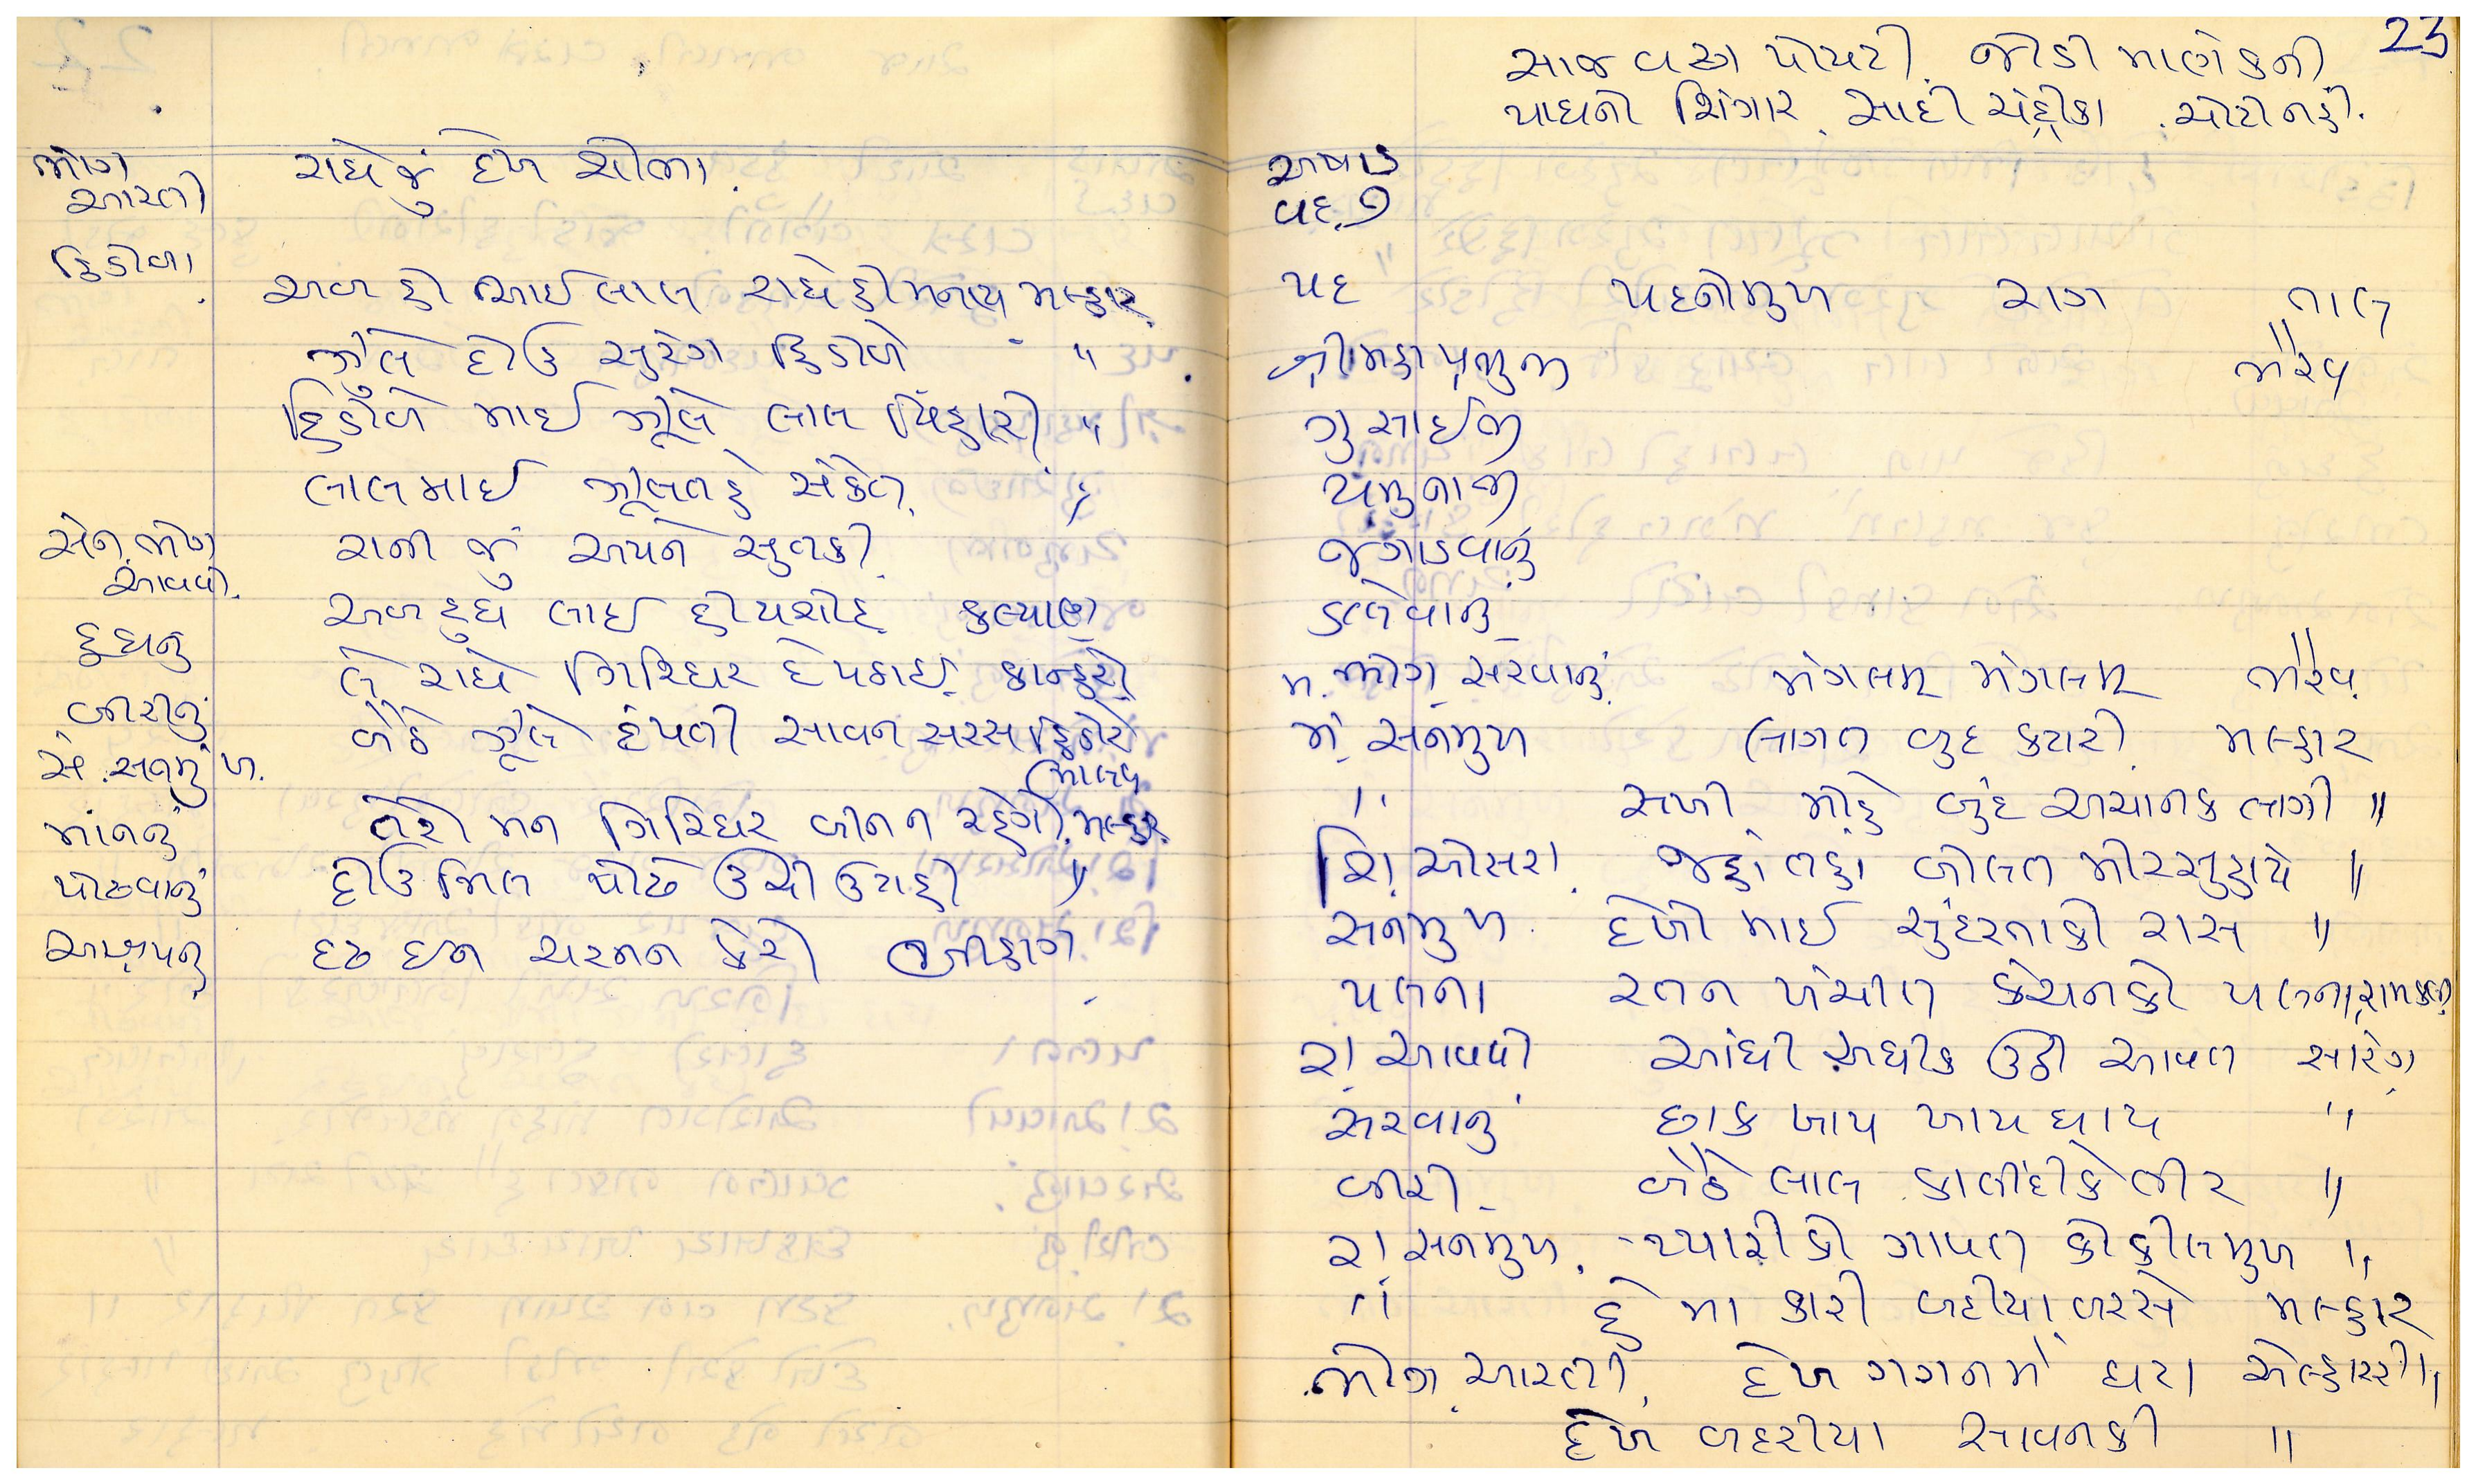 ભોગ
આરતી રાધેજુ દેખ સોભા.
હિંડોળા
અબ હી આઈ લાલ રાધેહી મનાય મલ્હાર
ઝૂલે દોઉ સુરંગ હિંડોળે "
હિંડોળે માઈ ઝૂલે લાલ બિહારી "
લાલમાઈ ઝૂલત હે સંકેત "
સેન ભોગ રાની જુ અપને સુતકી
આવવી
દુધનુ અબ દુધ લાઈ હી યશોદા કલ્યાણ
બીરીનું લે રાધે ગિરિધર દે પઠાઈ કાન્હરો
સે. સનમુખ. બેઠે ઝૂલે દંપતી સાવન સરસ હિંડોરે
માનનું તેરો મન ગિરિધર બીન ન રહેગો. મલ્હાર
પોઢવાનું દોઉ મિલ પોઢે ઉચી ઉટાહી "
આશ્રયનુ દઢ ઇન ચરનન કેરો બીહાગ
23
સાજ વસ્ત્ર પોપટી. જોડી માણેકની
પાઘનો શિંગાર. સાદી ચંદ્રીકા. ચોટી નહી.
અષાડ
વદ. ૭
પદ પદનીમુખ રાગ તાલ
શ્રીમહાપ્રભુજી ભૈરવ
ગુસાઈજી
યમુનાજી
જગાડવાનું
કલેવાનુ
મ. ભોગ સરવાનું મંગલમ્ મંગલમ્ ભૈરવ
મં સનમુખ લાગત બુદ કટારી મલ્હાર
" સખી મોહે બુંદ અચાનક લાગી "
શિં. ઓસરા જહાં તહાં બોલત મોર સુહાયે "
સનમુખ દેખો માઈ સુંદરતાકો રાસ "
પલના રતન ખંચીત કંચનકો પલના, રામકલી
રા. આવવી આંધી અધીક ઉઠી આવત સારંગ
સરવાનું છાક ખાય ખાય ધાય "
બીરી બેઠે લાલ કાલીંદીકે તીર "
રા સનમુખ. પ્યારી કો ગાવત કોકીલમુખ "
" હે મા કારી બદીયા બરસે મલ્હાર
ભોગ આરતી દેખ ગગનમે ઘટા "
દેખ બદરીયા સાવનકી "